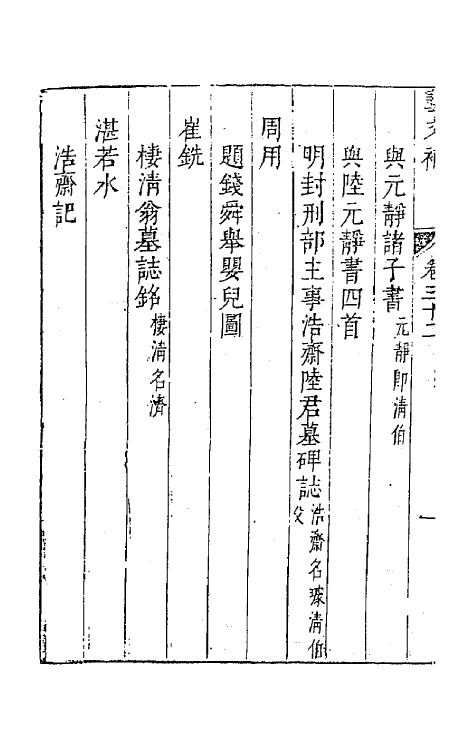 卷三十二 一
與元靜諸子書 元靜即清伯
與陸元靜書四首
明封刑部主事浩齋陸君墓碑誌 浩齋名璩清伯父
周用
題錢舜舉嬰兒圖
崔銑
棲清翁墓誌銘 棲清名濟
湛若水
浩齋記